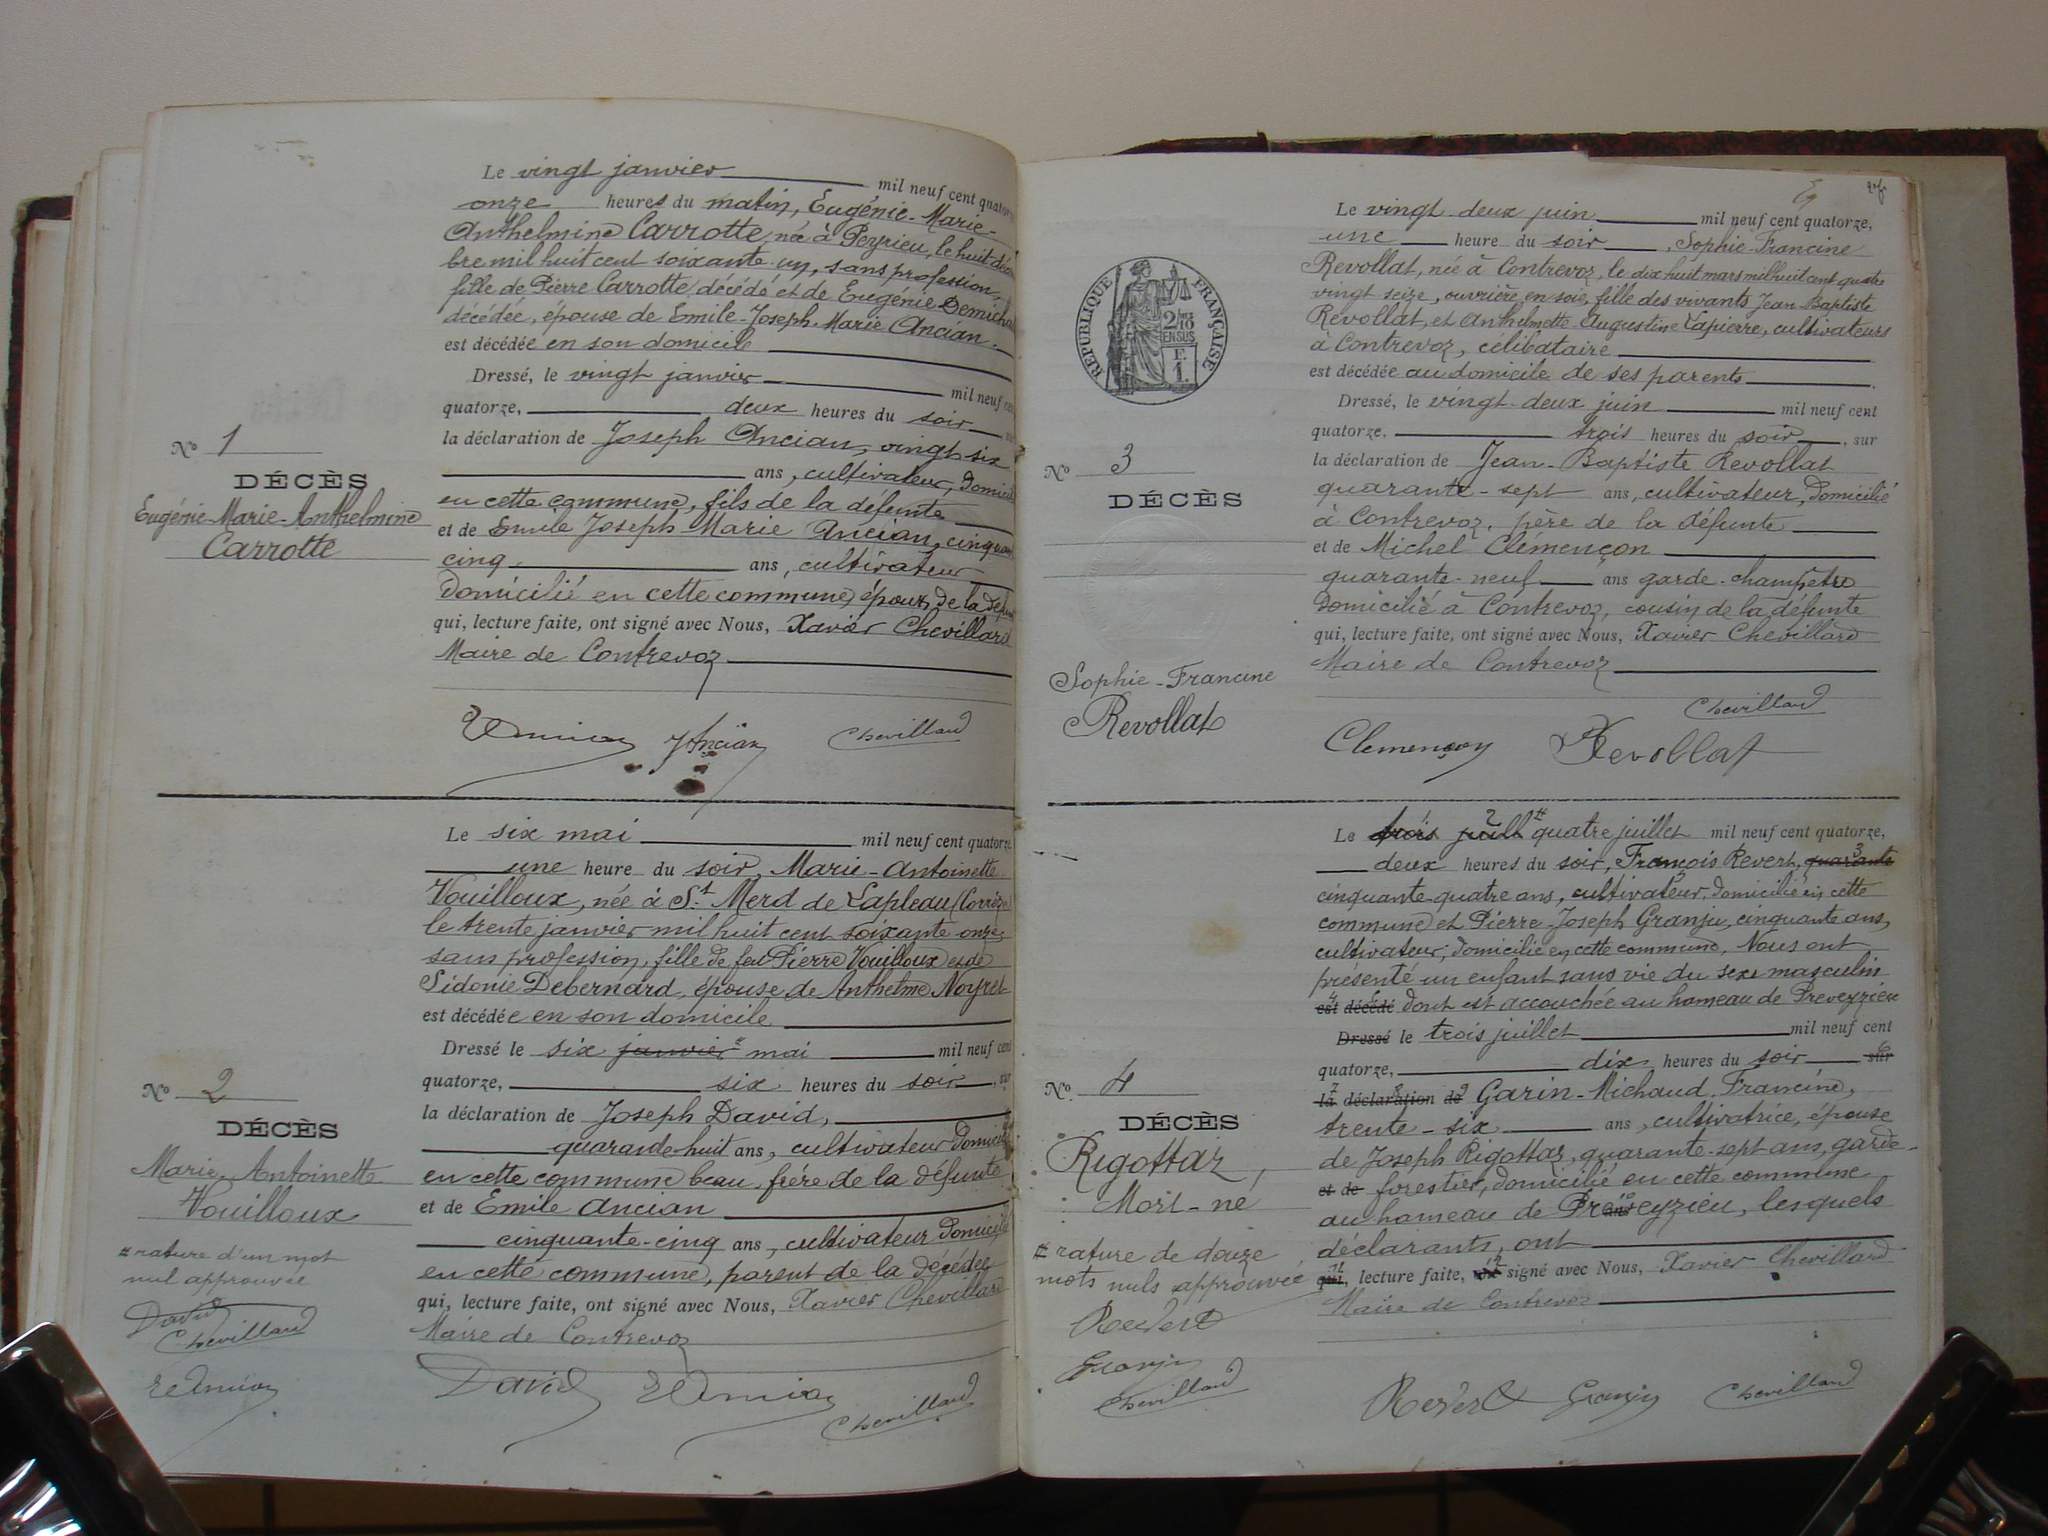 Le vingt janvier mil neuf cent quator
onze heures du matin, Eugénie-Marie-
Anthelmine Carrotte, née à Peyrieu, le huit décem
bre mil huit cent soixante-un, sans profession,
fille de Pierre Carrotte, décédé et de Eugénie Demicha
décédée, épouse de Emile-Joseph-Marie Ancian.
est décédée en son domicile
Dressé, le vingt janvier mil neuf cen
quatorze, deux heures du soir
la déclaration de Joseph Ancian, vingt six
ans, cultivateur, domicil
en cette commune, fils de la défunte
et de Emile Joseph Marie Ancian, cinquan
cinq ans, cultivateur
domicilié en cette commune, époux de la défun
qui, lecture faite, ont signé avec Nous, Xavier Chevillard
Maire de Contrevoz
J Ancian Chevillard
No 1
DÉCÈS
Eugénie-Marie-Anthelmine
Carrotte
Le six mai mil neuf cent quatorze,
une heure du soir, Marie-Antoinette
Vouilloux, née à St Merd de Lapleau (Corrèze)
le trente janvier mil huit cent soixante-onze,
sans profession, fille de feu Pierre Vouilloux et de
Sidonie Debernard, épouse de Anthelme Noyret
est décédée en son domicile
Dressé le six janvier # mai mil neuf cent
quatorze, six heures du soir, sur
la déclaration de Joseph David,
quarande-huit ans, cultivateur domicil
en cette commune beau-frère de la défunte
et de Emile Ancian
cinquante-cinq ans, cultivateur domicil
en cette commune, parent de la décédée
qui, lecture faite, ont signé avec Nous, Xavier Chevillard
Maire de Contrevoz
David Chevillard
No 2
DÉCÈS
Marie-Antoinette
Vouilloux
# rature d'un mot
nul approuvée
David
Chevillard
Le vingt-deux juin mil neuf cent quatorze,
une heure du soir, Sophie-Francine
Revollat, née à Contrevoz, le dix huit mars mil huit cent quatre
vingt seize, ouvrière en soie, fille des vivants Jean-Baptiste
Revollat, et Anthelmette Augustine Lapierre, cultivateurs
à Contrevoz, célibataire
est décédée au domicile de ses parents
Dressé, le vingt-deux juin mil neuf cent
quatorze, trois heures du soir, sur
la déclaration de Jean-Baptiste Revollat
quarante-sept ans, cultivateur, domicilié
à Contrevoz, père de la défunte
et de Michel Clémençon
quarante-neuf ans garde-champêtre
domicilié à Contrevoz, cousin de la défunte
qui, lecture faite, ont signé avec Nous, Xavier Chevillard
Maire de Contrevoz
Chevillard
Clemençon Revollat
RÉPUBLIQUE FRANÇAISE
2/10
EN SUS
F.
1.
No 3
DÉCÈS
Sophie-Francine
Revollat
Le trois juill 2 # quatre juillet mil neuf cent quatorze,
deux heures du soir, François Revert, quarante 3
cinquante-quatre ans, cultivateur, domicilié en cette
commune et Pierre-Joseph Granju, cinquante ans,
cultivateur, domicilié en cette commune, Nous ont
présenté un enfant sans vie du sexe masculin
est décédé dont est accouchée au hameau de Preveyzieu
Dressé le trois juillet mil neuf cent
quatorze, dix heures du soir sur
la déclaration de Garin-Michaud Francine,
trente-six ans, cultivatrice, épouse
de Joseph Rigottaz, quarante-sept ans, garde-
et de forestier, domicilié en cette commune
au hameau de Preveyzieu, lesquels
déclarants, ont
qui, lecture faite, ont signé avec Nous, Xavier Chevillard
Maire de Contrevoz
Revert Granju Chevillard
No 4
DÉCÈS
Rigottaz,
Mort-né
# rature de douze
mots nuls approuvée
Revert
Granju
Chevillard